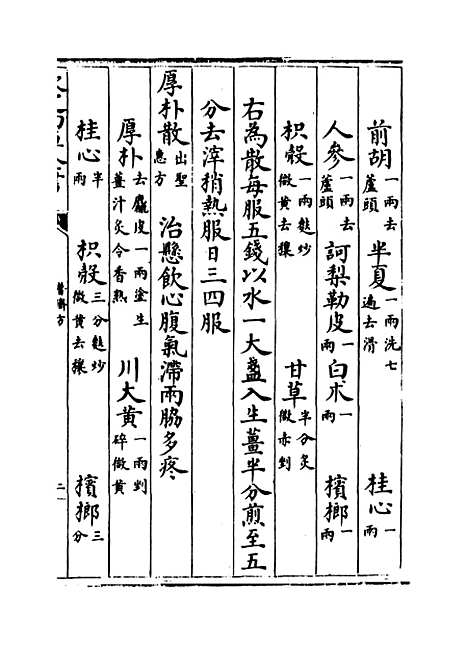 前胡一兩去蘆頭 半夏一兩洗七遍去滑 桂心一兩
人參一兩去蘆頭 訶梨勒皮一兩 白朮一兩 檳榔一兩
枳殼一兩麩炒微黄去穰 甘草半分炙微赤剉
右為散每服五錢以水一大盞入生薑半分煎至五
分去滓稍熱服日三四服
厚朴散出聖惠方 治懸飲心腹氣滯兩脇多疼
厚朴去麤皮一兩塗生薑汁炙令香熟 川大黄一兩剉碎微黄
桂心半兩 枳殼三分麩炒微黄去穰 檳榔三分
普濟方